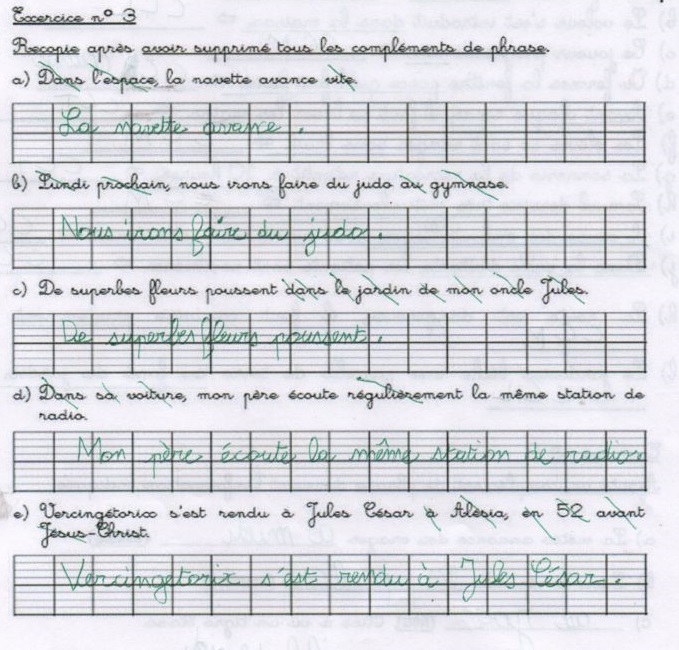 Exercice n° 3
Recopie après avoir supprimé tous les compléments de phrase.
a) Dans l'espace, la navette avance vite.
La navette avance.
b) Lundi prochain, nous irons faire du judo au gymnase.
Nous irons faire du judo.
c) De superbes fleurs poussent dans le jardin de mon oncle Jules.
De superbes fleurs poussent.
d) Dans sa voiture, mon père écoute régulièrement la même station de
radio.
Mon père écoute la même station de radio.
e) Vercingétorix s'est rendu à Jules César à Alésia, en 52 avant
Jésus-Christ.
Vercingetorix s'est rendu à Jules César.